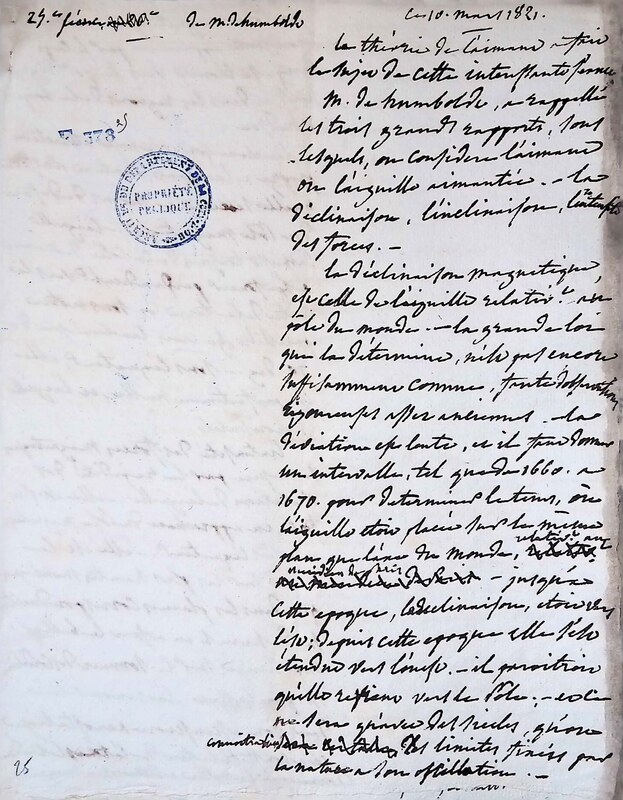 25.e séance de M. de humboldt ce 10. mars 1821.
la théorie de l'aimant a fait
le sujet de cette interessante séance
M. de humboldt, a rappellé
les trois grands rapports, sous
lesquels, on considere l'aimant
ou l'aiguille aimantée. — la
déclinaison, l'inclinaison, l'intensité
des forces. —
E 378 25
ARCHIVES DU DÉPARTEMENT DE LA CÔTE D'OR
PROPRIÉTÉ
PUBLIQUE
la déclinaison magnetique,
est celle de l'aiguille relativ.t au
pôle du monde. — la grande loi
qui la détermine, n'est pas encore
suffisamment connue, faute d'observations
rigoureuses assez anciennes — la
déviation est lente, et il faut donner
un intervalle, tel que de 1660. a
1670. pour determiner le tems, où
l'aiguille etoit placée sur le même
plan que l'axe du monde, relativ.t au
meridien de Paris — jusqu'a
cette epoque, la declinaison, etoit vers
l'est; depuis cette epoque elle s'est
étendue vers l'ouest. — il paroitroit
qu'elle revient vers le Pôle. — et ce
ne sera qu'avec des siecles, qu'on
connoitra les limites fixées par
la nature a son oscillation. —